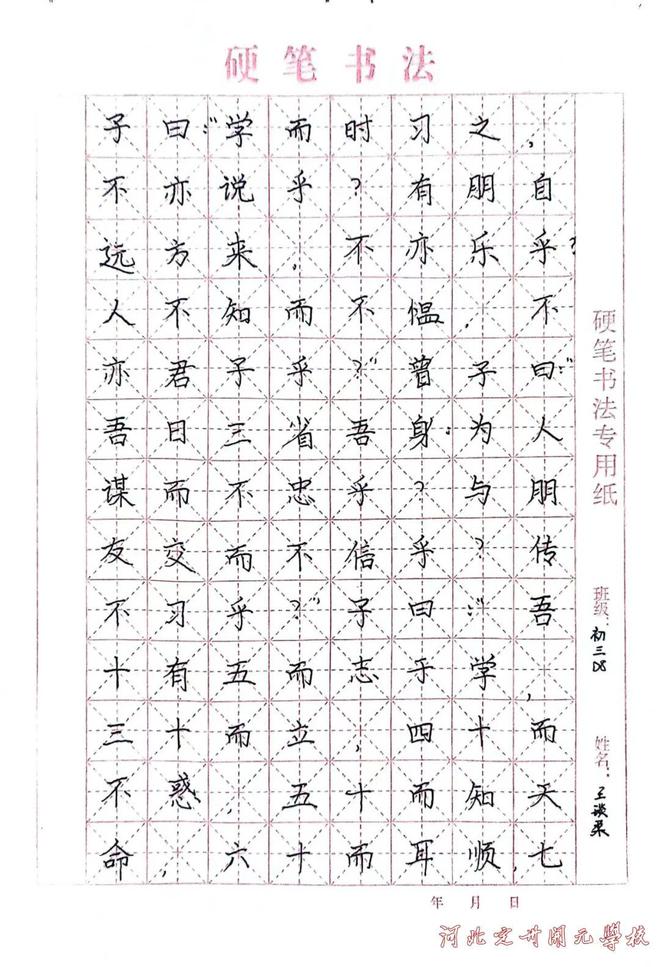 硬笔书法
子曰:"学而时习之,
不亦说乎?有朋自
远方来,不亦乐乎?
人不知而不愠,不
亦君子乎?"曾子曰:"
吾日三省吾身:为人
谋而不忠乎?与朋
友交而不信乎?传
不习乎?"子曰:"吾
十有五而志于学,
三十而立,四十而
不惑,五十而知天
命,六十而耳顺,七
硬笔书法专用纸
班级:初三D8
姓名:王
年 月 日
河北定州開元學校